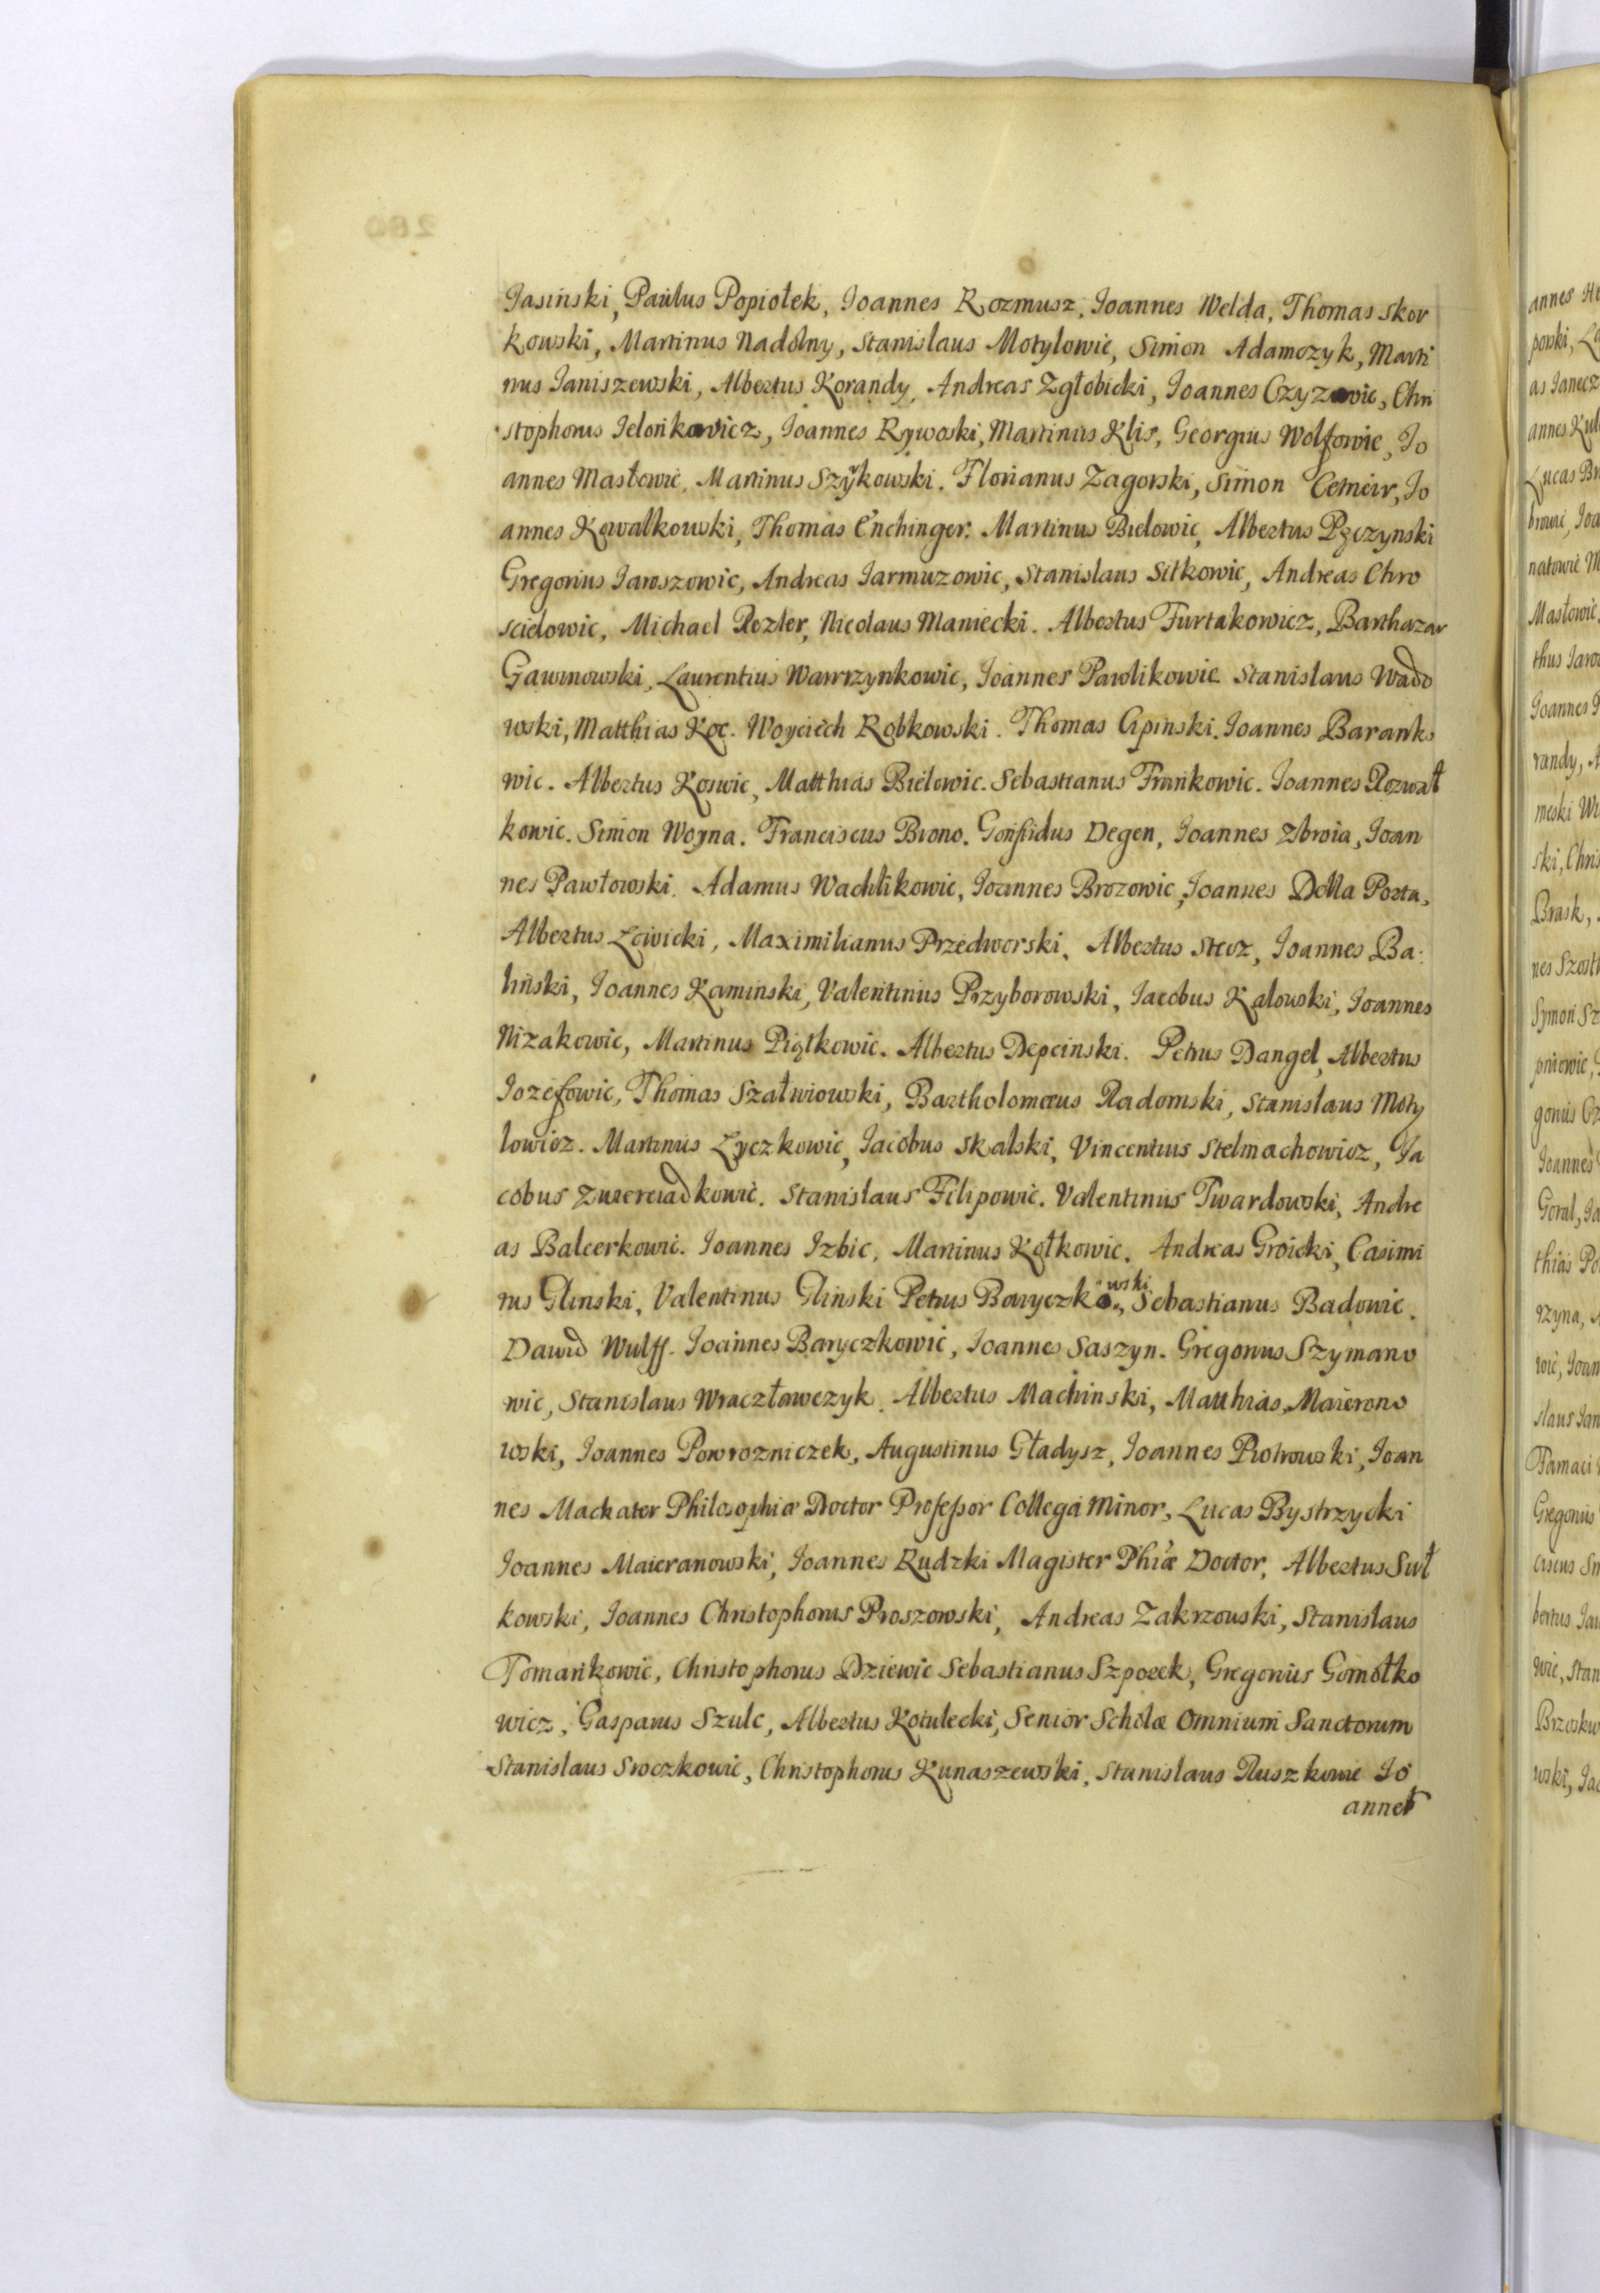 Jasiński, Paulus Popiołek, Joannes Rozmusz, Joannes Welda, Thomas Skor
kowski, Martinus Nadolny, Stanislaus Motylowic, Simon Adamczyk, Marti
nus Janiszewski, Albertus Korandy, Andreas Zgłobicki, Joannes Czyzowic, Chri
stophorus Jelonkowicz, Joannes Rywocki, Martinus Klis, Georgius Wolfowic, Jo
annes Masłowic, Martinus Szykowski. Florianus Zagorski, Simon Cetneir, Jo
annes Kowalkowski, Thomas Enchinger. Martinus Bielowic, Albertus Pęczynski
Gregorius Jaroszowic, Andreas Jarmuzowic, Stanislaus Sitkowic, Andreas Chro
scielowic, Michael Rezler, Nicolaus Maniecki. Albertus Furtakowicz, Barthazar
Gawinowski, Laurentius Wawrzynkowic, Joannes Pawlikowic Stanislaus Wado
wski, Matthias Koc. Woyciech Robkowski. Thomas Cipinski. Joannes Baranko
wic. Albertus Koswic, Matthias Bielowic. Sebastianus Frankowic. Joannes Rozwał
kowic. Simon Woyna. Franciscus Brono. Degen, Joannes Zbroia, Joan
nes Pawłowski. Adamus Wachlikowic, Joannes Brozowic, Joannes Della Porta,
Albertus Lewicki, Maximilianus Przedworski, Albertus Stecz, Joannes Ba:
liński, Joannes Kaminski, Valentinus Przyborowski, Jacobus Kalowski, Joannes
Nizakowic, Martinus Piątkowic. Albertus Depcinski. Petrus Dangel, Albertus
Jozefowic, Thomas Szałwiowski, Bartholomæus Radomski, Stanislaus Moty
lowicz. Martinus Łyczkowic, Jacobus Skalski, Vincentius Stelmachowicz, Ja
cobus Zwierciadkowic. Stanislaus Filipowic. Valentinus Twardowski, Andre
as Balcerkowic. Joannes Izbic, Martinus Kotkowic. Andreas Groicki, Casimi
rus Glinski, Valentinus Gliński Petrus Baryczkowski, Sebastianus Badowic.
Dawid Wulff. Joannes Baryczkowic, Joannes Saszyn. Gregorius Szymano
wic, Stanislaus Wraczławczyk. Albertus Machinski, Matthias Maierano
wski, Joannes Powrozniczek, Augustinus Gładysz, Joannes Piotrowski, Joan
nes Mackater Philosophiæ Doctor Professor Collega Minor, Lucas Bystrzycki
Joannes Maieranowski, Joannes Rudzki Magister Phiæ Doctor, Albertus Suł
kowski, Joannes Christophorus Proszowski, Andreas Zakrzowski, Stanislaus
Tomańkowic, Christophorus Dziewic Sebastianus Szporek, Gregorius Gomołko
wicz, Gasparus Szulc, Albertus Kotulecki, Senior Scholæ Omnium Sanctorum
Stanislaus Sroczkowic, Christophorus Kunaszewski, Stanislaus Ruszkowic Jo
annes